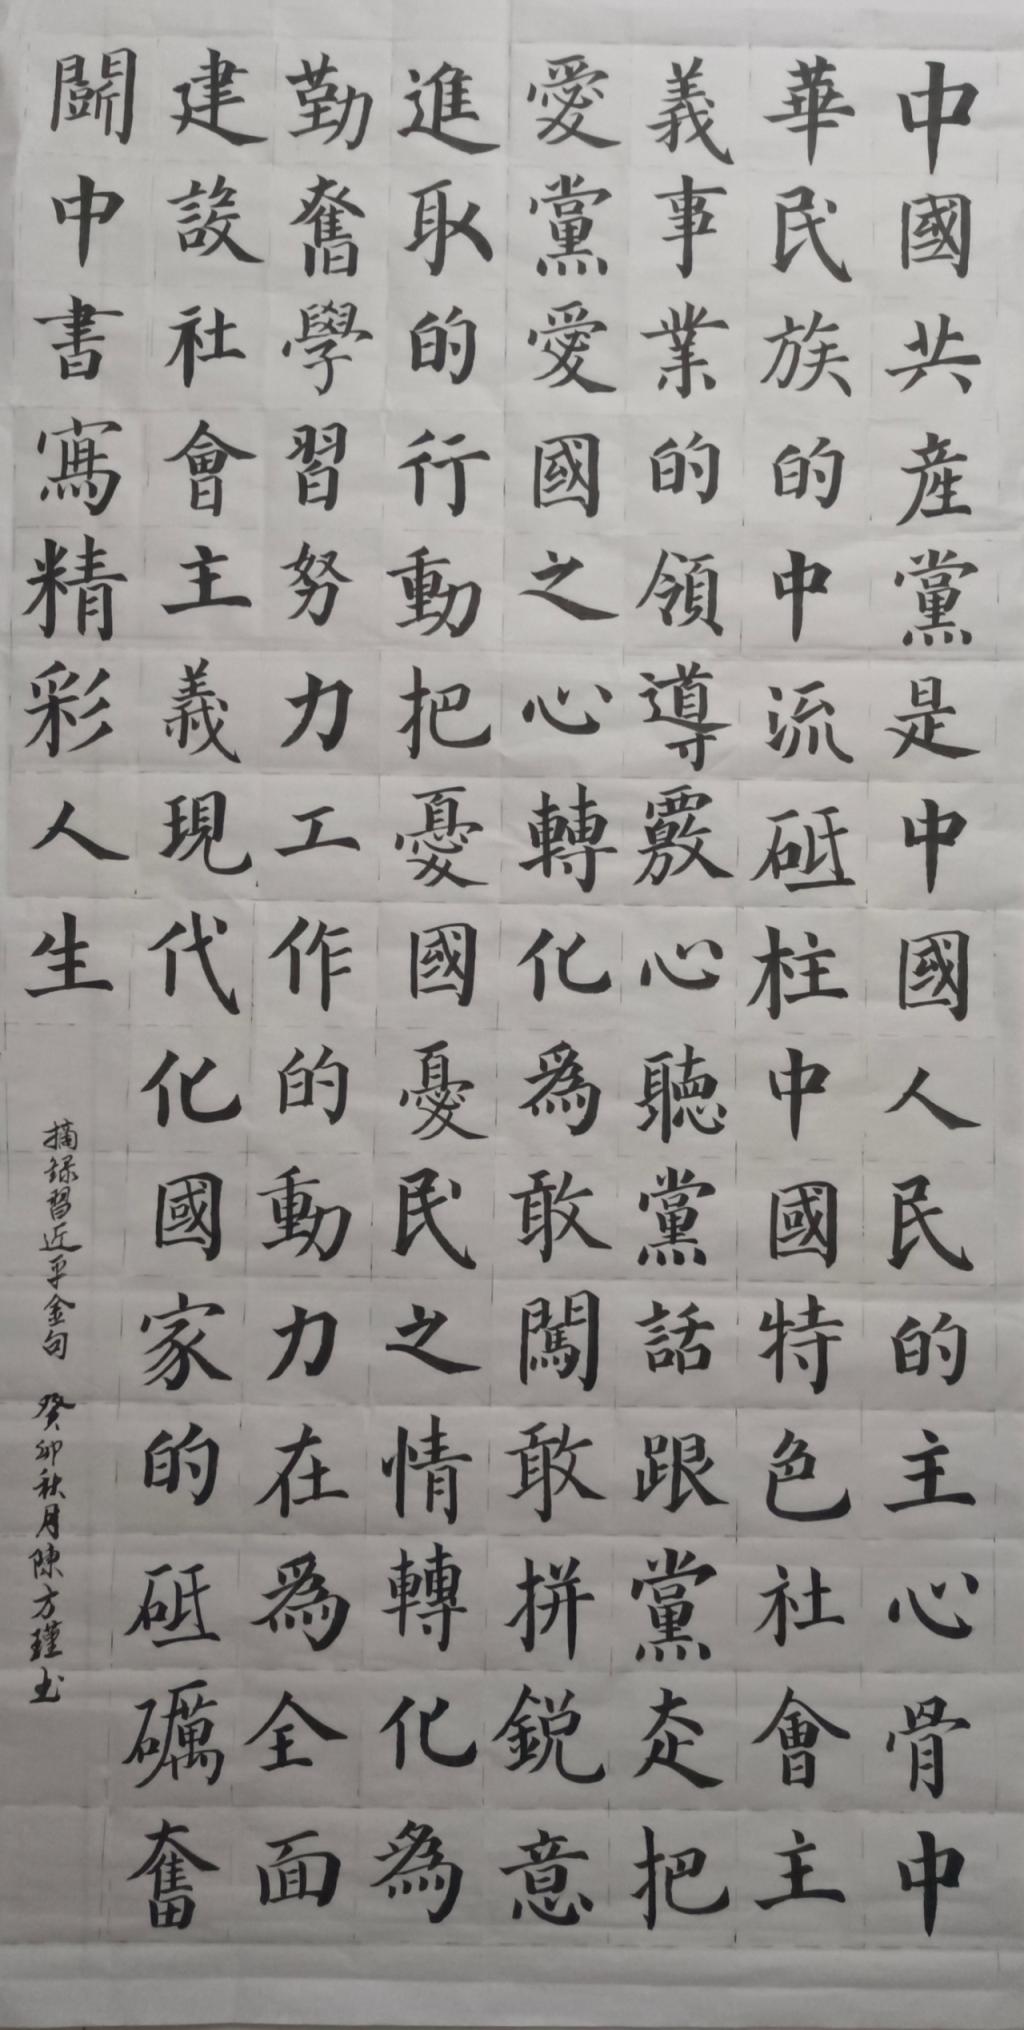 中國共産黨是中國人民的主心骨中
華民族的中流砥柱中國特色社會主
義事業的領導覈心聽黨話跟黨走把
愛黨愛國之心轉化為敢闖敢拼鋭意
進取的行動把憂國憂民之情轉化為
勤奮學習努力工作的動力在為全面
建設社會主義現代化國家的砥礪奮
鬭中書寫精彩人生
摘録習近平金句 癸卯秋月陳方瑾书